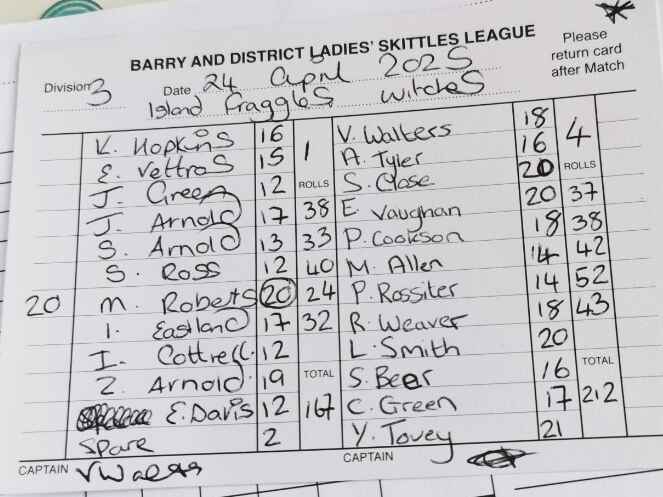 BARRY AND DISTRICT LADIES' SKITTLES LEAGUE
Please return card after Match
Division 3 Date 24 April 2025
Island Fraggles Witches
K. Hopkins 16 1 V. Walters 18 4
E. Vettros 15 A. Tyler 16
J. Green 12 ROLLS S. Close 20 ROLLS
J. Arnold 17 38 E Vaughan 20 37
S. Arnold 13 33 P. Cookson 18 38
S. Ross 12 40 M. Allen 14 42
20 M. Roberts 20 24 P. Rossiter 14 52
I. Eastland 17 32 R. Weaver 18 43
I. Cottrell 12 L. Smith 20
Z. Arnold 19 TOTAL S. Beer 16 TOTAL
E. Davis 12 167 C. Green 17 212
Spare 2 Y. Tovey 21
CAPTAIN CAPTAIN